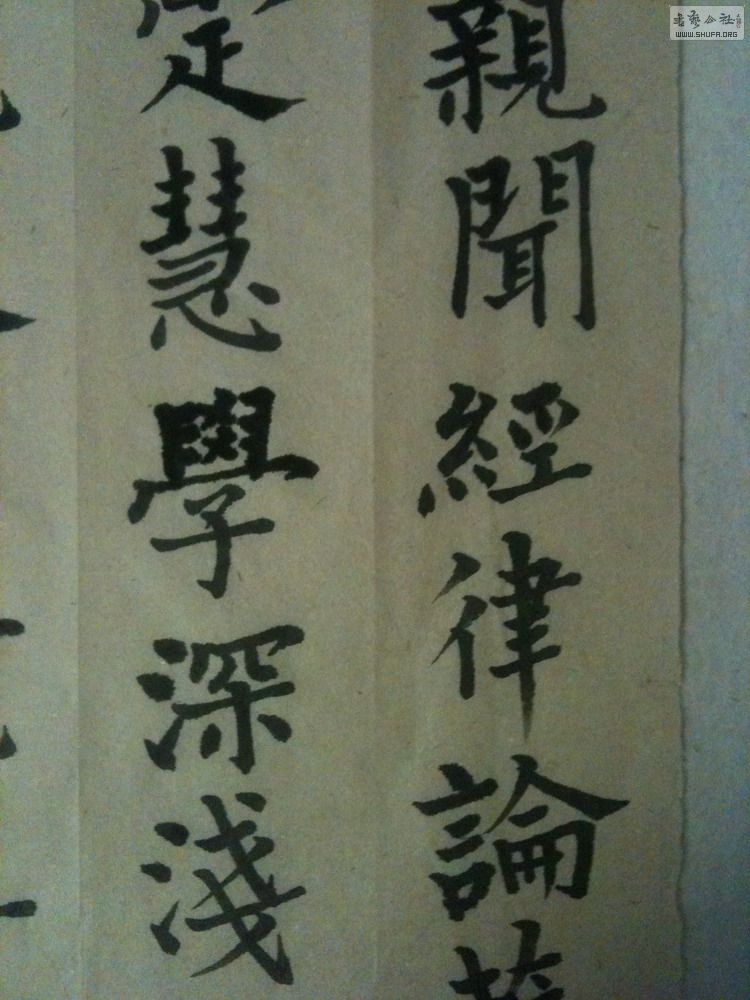 親聞經律論
定慧學深淺
書藝公社
WWW.SHUFA.ORG